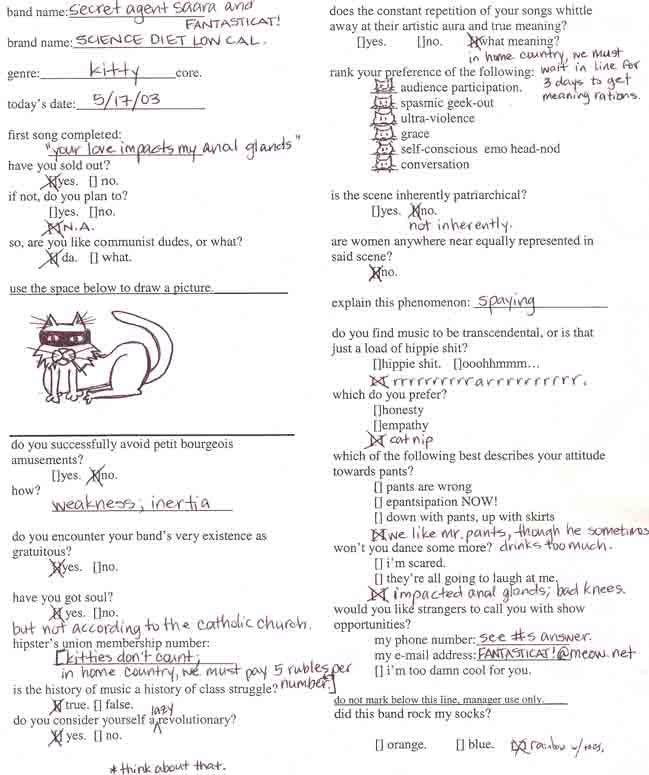 band name: secret agent saara and
FANTASTICAT!
brand name: SCIENCE DIET LOW CAL.
genre: kitty core.
today's date: 5/17/03
first song completed:
"your love impacts my anal glands"
have you sold out?
[X]yes. [] no.
if not, do you plan to?
[]yes. []no.
[X] N.A.
so, are you like communist dudes, or what?
[X] da. [] what.
use the space below to draw a picture.
do you successfully avoid petit bourgeois
amusements?
[]yes. [X]no.
how?
weakness; inertia
do you encounter your band's very existence as
gratuitous?
[X]yes. []no.
have you got soul?
[X] yes. []no.
but not according to the catholic church.
hipster's union membership number:
[kitties don't count;
in home country, we must pay 5 rubles per
number.]
is the history of music a history of class struggle?
[X] true. [] false.
do you consider yourself a lazy revolutionary?
[X] yes. [] no.
*think about that.
does the constant repetition of your songs whittle
away at their artistic aura and true meaning?
[]yes. []no. [X]what meaning?
in home country, we must
wait in line for
3 days to get
meaning rations.
rank your preference of the following:
audience participation.
spasmic geek-out
ultra-violence
grace
self-conscious emo head-nod
conversation
is the scene inherently patriarchical?
[]yes. [X]no.
not inherently.
are women anywhere near equally represented in
said scene?
[X]no.
explain this phenomenon: spaying
do you find music to be transcendental, or is that
just a load of hippie shit?
[]hippie shit. []ooohhmmm…
[X] rrrrrrrrrrarrrrrrrrrr.
which do you prefer?
[]honesty
[]empathy
[X] catnip
which of the following best describes your attitude
towards pants?
[] pants are wrong
[] epantsipation NOW!
[] down with pants, up with skirts
[X] we like mr. pants, though he sometimes
drinks too much.
won't you dance some more?
[] i'm scared.
[] they're all going to laugh at me.
[X] impacted anal glands; bad knees.
would you like strangers to call you with show
opportunities?
my phone number: see #5 answer.
my e-mail address: FANTASTICAT!@meow.net
[] i'm too damn cool for you.
do not mark below this line, manager use only.
did this band rock my socks?
[] orange. [] blue. [X] rainbow w/toes.